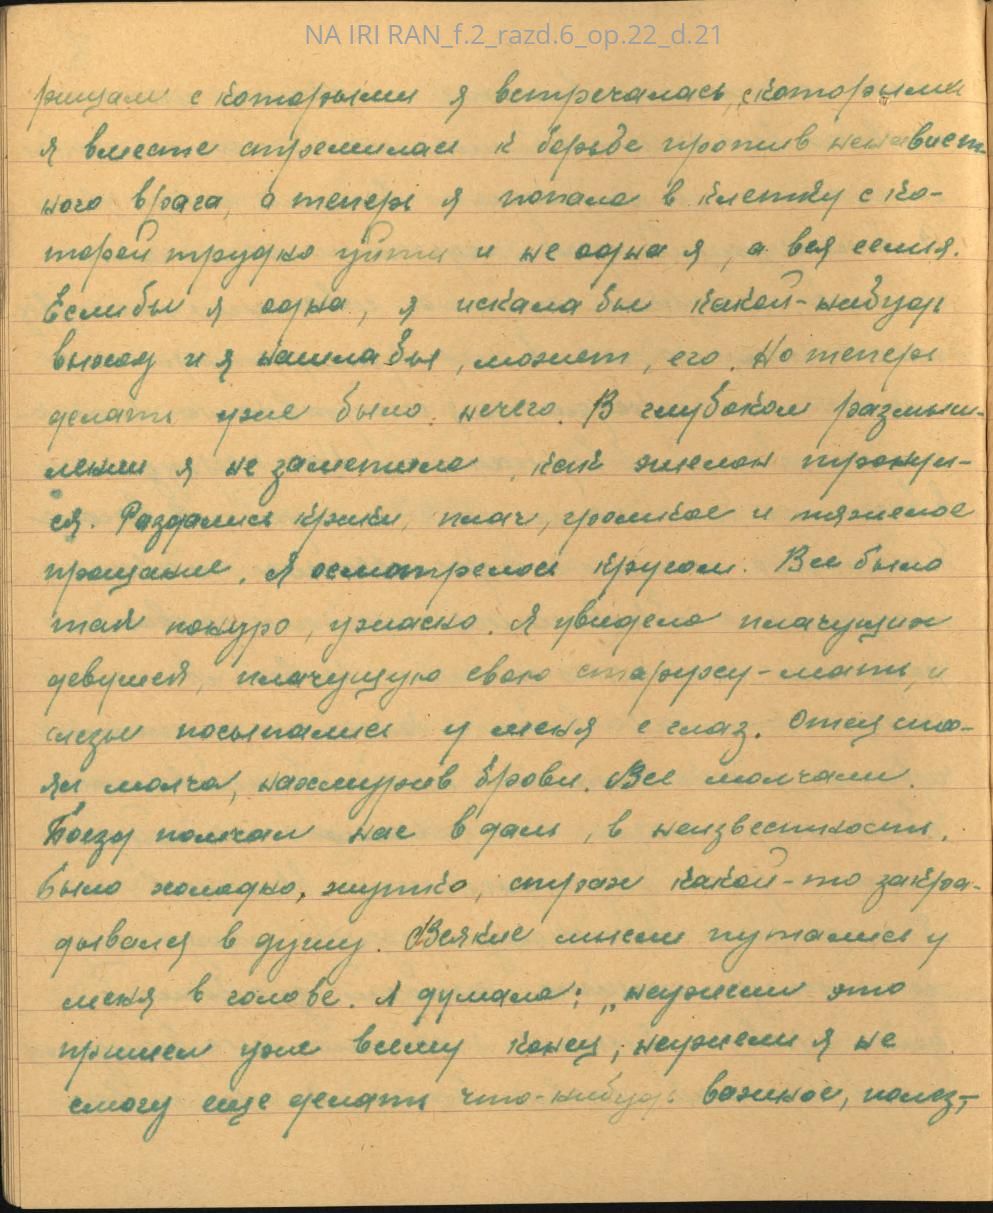 NA IRI RAN_f.2_razd.6_op.22_d.21
рищам с которыми я встречалась, с которыми
я вместе стремилась к борьбе против ненавист-
ного врага, а теперь я попала в клетку с ко-
торой трудно уйти и не одна я, а вся семья.
Еслибы я одна, я искала бы какой-нибудь
выход и я нашла бы, может, его. Но теперь
делать уже было нечего. В глубоком размыш-
лении я не заметила, как эшелон тронул-
ся. Раздались крики, плач, громкое и тяжелое
прощание. Я осмотрелась кругом. Все было
так понуро, ужасно. Я увидела плачущих
девушек, плачущую свою старуху-мать, и
слезы посыпались у меня с глаз. Отец сто-
ял молча, нахмурив брови. Все молчали.
Поезд помчал нас вдаль, в неизвестность.
Было холодно, жутко, страх какой-то закра-
дывался в душу. Всякие мысли путались у
меня в голове. Я думала: „неужели это
пришел уже всему конец, неужели я не
смогу еще делать что-нибудь важное, полез-